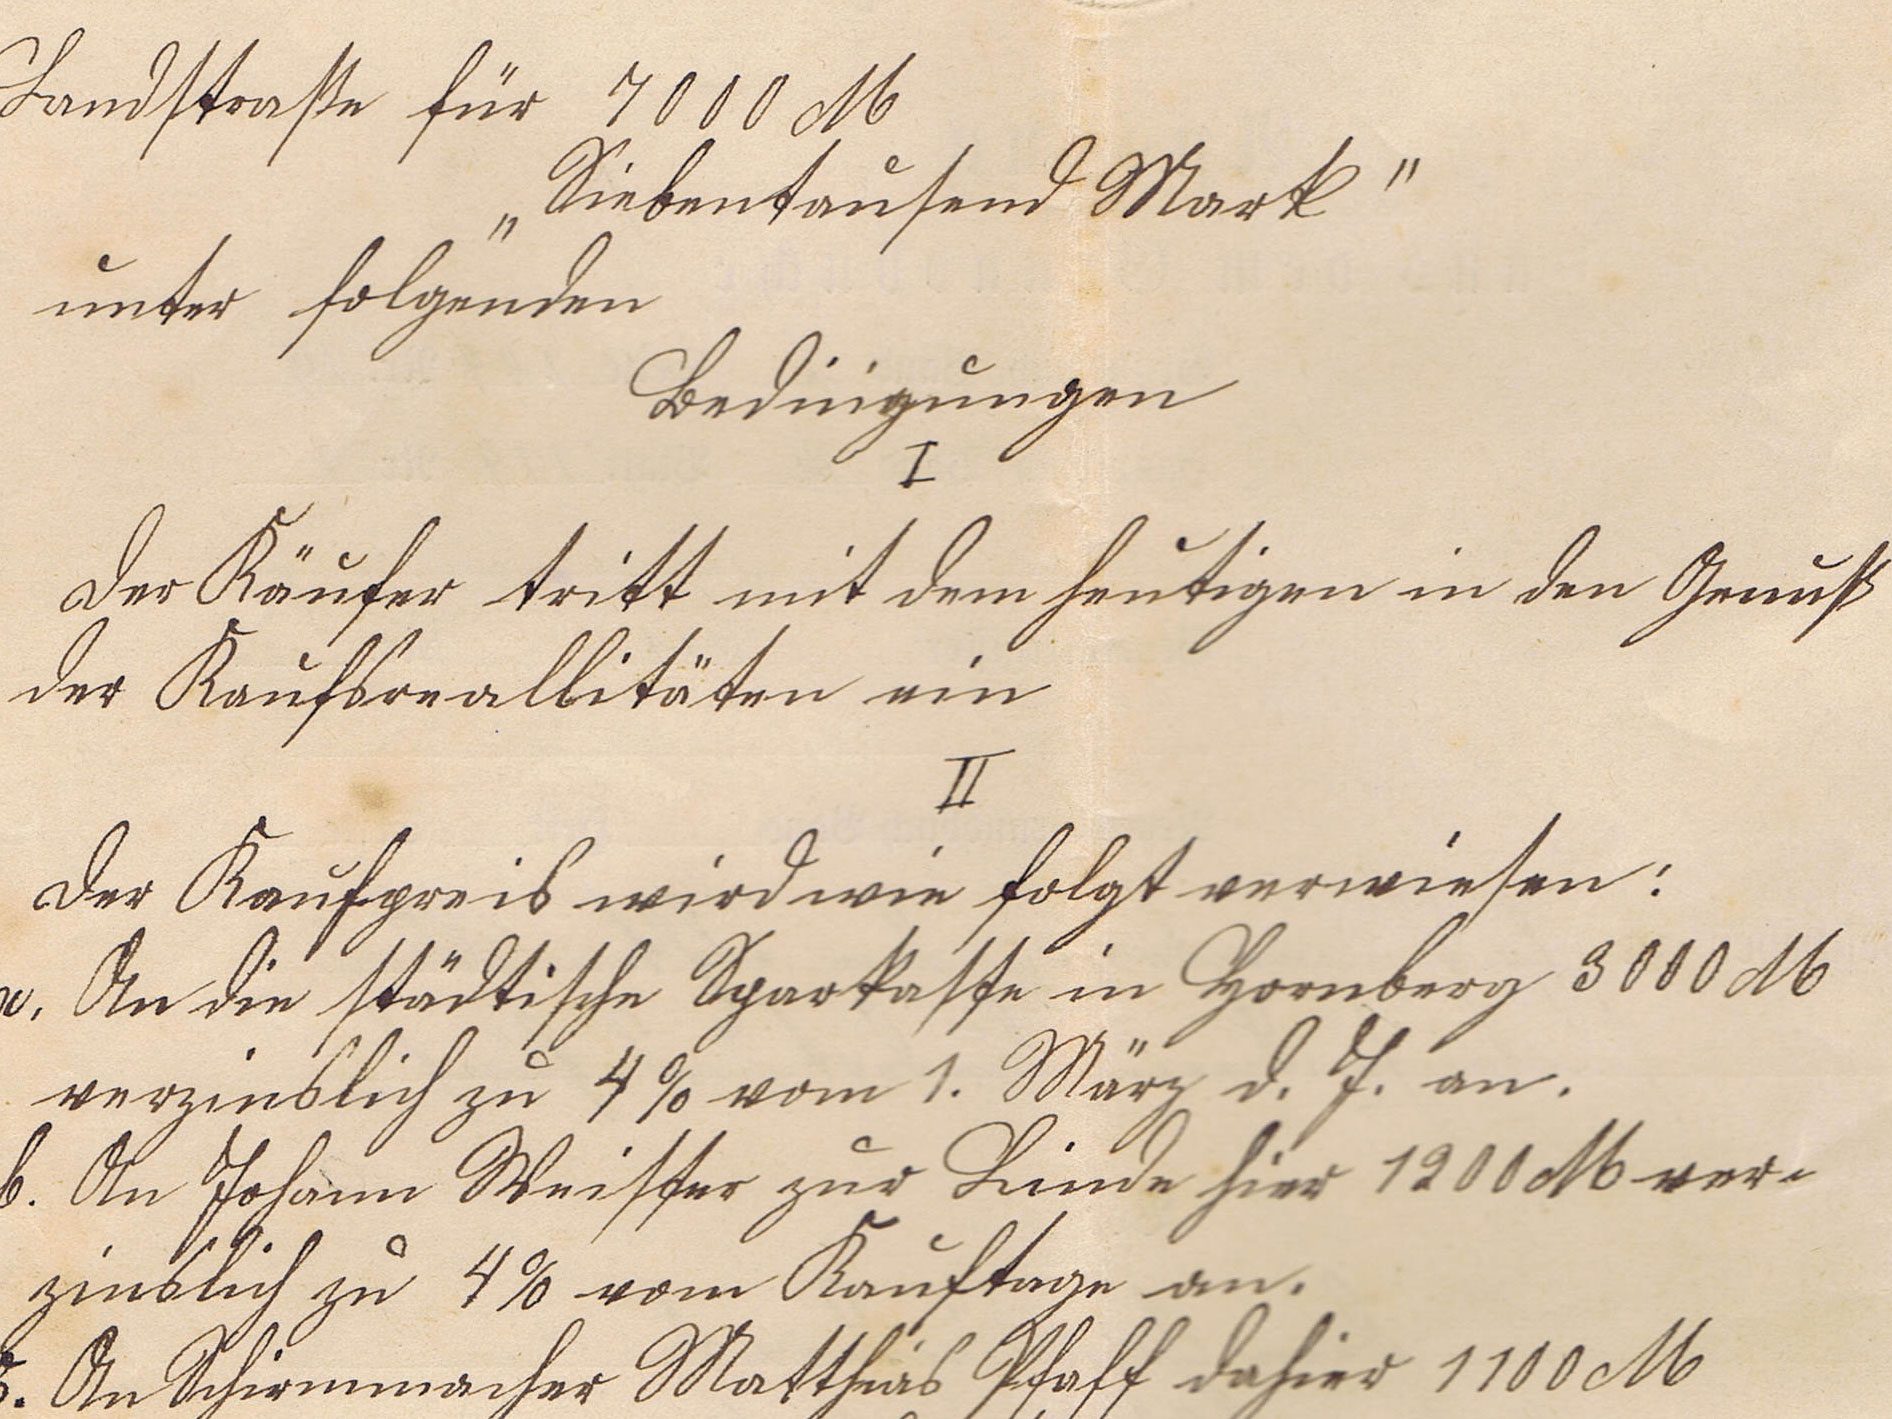 Landstraße für 7000 M
„Siebentausend Mark"
unter folgenden
Bedingungen
I
Der Käufer tritt mit dem heutigen in den Genuß
der Kaufsreallitäten ein
II
Der Kaufpreis wird wie folgt verwiesen:
a. An die städtische Sparkasse in Hornberg 3000 M
verzinslich zu 4% vom 1. März d. J. an.
b. An Johann Weisser zur Linde hier 1200 M ver-
zinslich zu 4% vom Kauftage an.
An Schirmmacher Matthias Pfaff dahier 1100 M